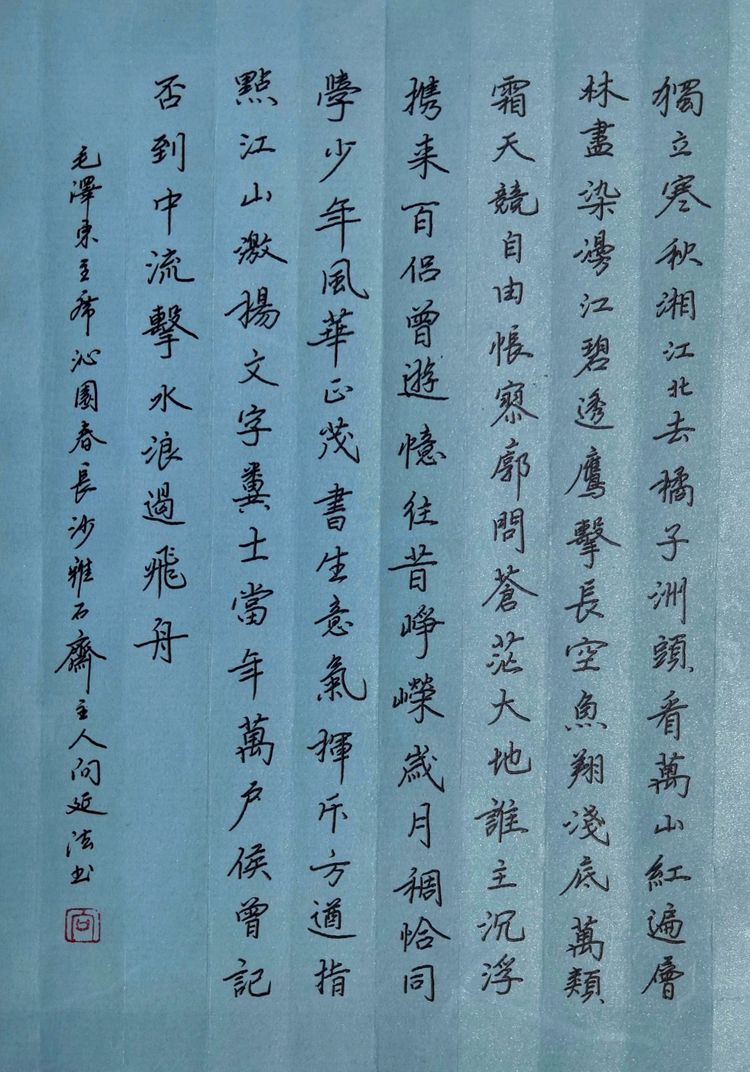 獨立寒秋湘江北去橘子洲頭看萬山紅遍層
林盡染漫江碧透鷹擊長空魚翔淺底萬類
霜天競自由悵寥廓問蒼茫大地誰主沉浮
携来百侣曾遊憶往昔崢嶸歲月稠恰同
學少年風華正茂書生意氣揮斥方遒指
點江山激揚文字糞土當年萬户侯曾記
否到中流擊水浪遏飛舟
毛澤東主席沁園春長沙雅石齋主人向延法书
向